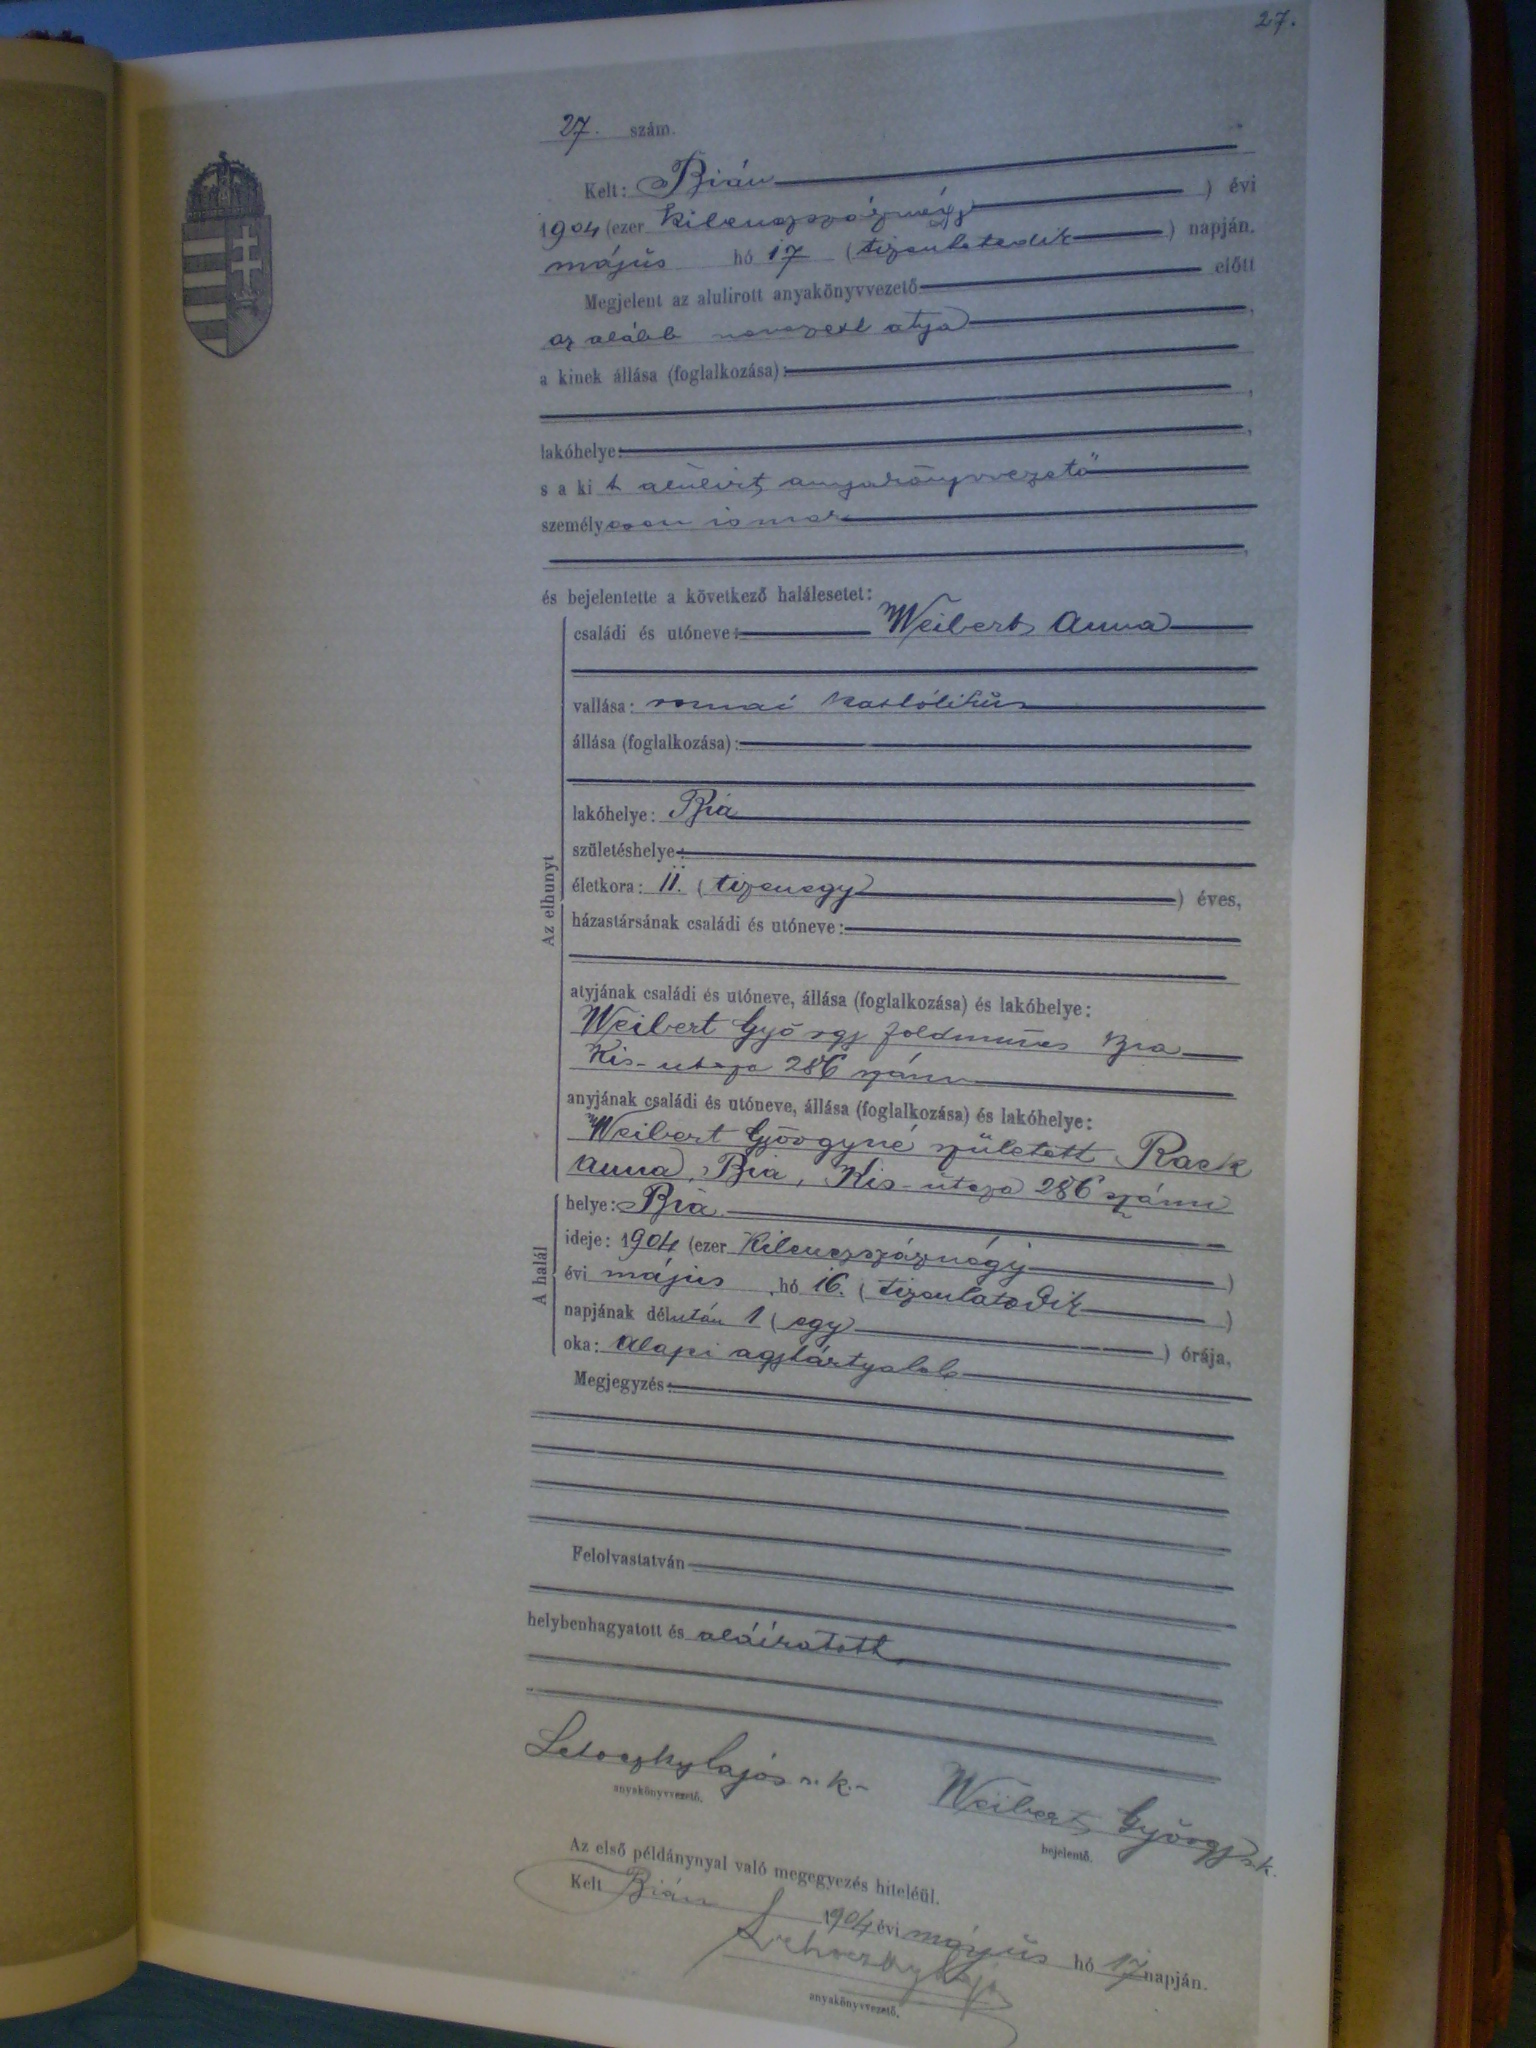 27.
27. szám.
Kelt: Bián
1904 (ezer kilenczszáznégy) évi
május hó 17 (tizenhetedik) napján.
Megjelent az alulirott anyakönyvvezető előtt
az alább nevezett atyja,
a kinek állása (foglalkozása):
,
lakóhelye: ,
s a kit alulirt anyakönyvvezető
személyesen ismer
,
és bejelentette a következő halálesetet:
Az elhunyt
családi és utóneve: Weibert Anna
vallása: romai katholikus
állása (foglalkozása):
lakóhelye: Bia
születéshelye:
életkora: 11. (tizenegy) éves,
házastársának családi és utóneve:
atyjának családi és utóneve, állása (foglalkozása) és lakóhelye:
Weibert György földműves Bia
Kis-utcza 286 szám
anyjának családi és utóneve, állása (foglalkozása) és lakóhelye:
Weibert Györgyné született Rack
Anna, Bia, Kis-utcza 286 szám
A halál
helye: Bia
ideje: 1904 (ezer kilenczszáznégy)
évi május hó 16. (tizenhatodik)
napjának délután 1 (egy) órája,
oka: alapi agyhártyalob
Megjegyzés:
Felolvastatván
helybenhagyatott és aláiratott
Lajos s. k. Weibert György s. k.
anyakönyvvezető. bejelentő.
Az első példánynyal való megegyezés hiteléül.
Kelt Bián 1904 évi május hó 17 napján.
anyakönyvvezető.